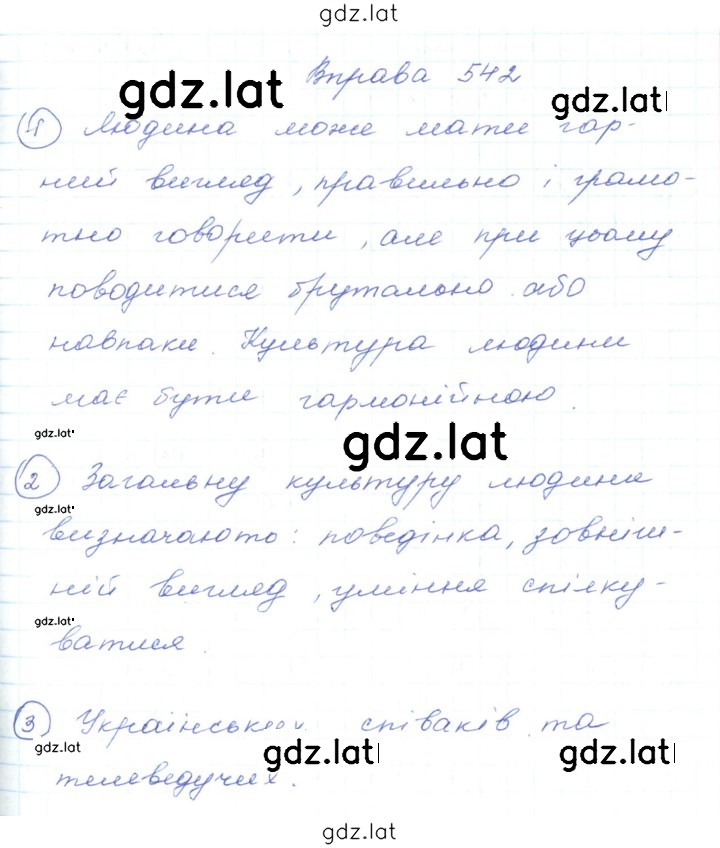 gdz.lat
Вправа 542
gdz.lat
gdz.lat
1) Людина може мати гар-
ний вигляд, правильно і грамо-
тно говорити, але при цьому
поводитися брутально або
навпаки. Культура людини
має бути гармонійною.
gdz.lat
gdz.lat
2) Загальну культуру людини
gdz.lat
визначають: поведінка, зовніш-
ній вигляд, уміння спілку-
gdz.lat
ватися.
3) Українських співаків та
gdz.lat
gdz.lat
gdz.lat
телеведучих.
gdz.lat